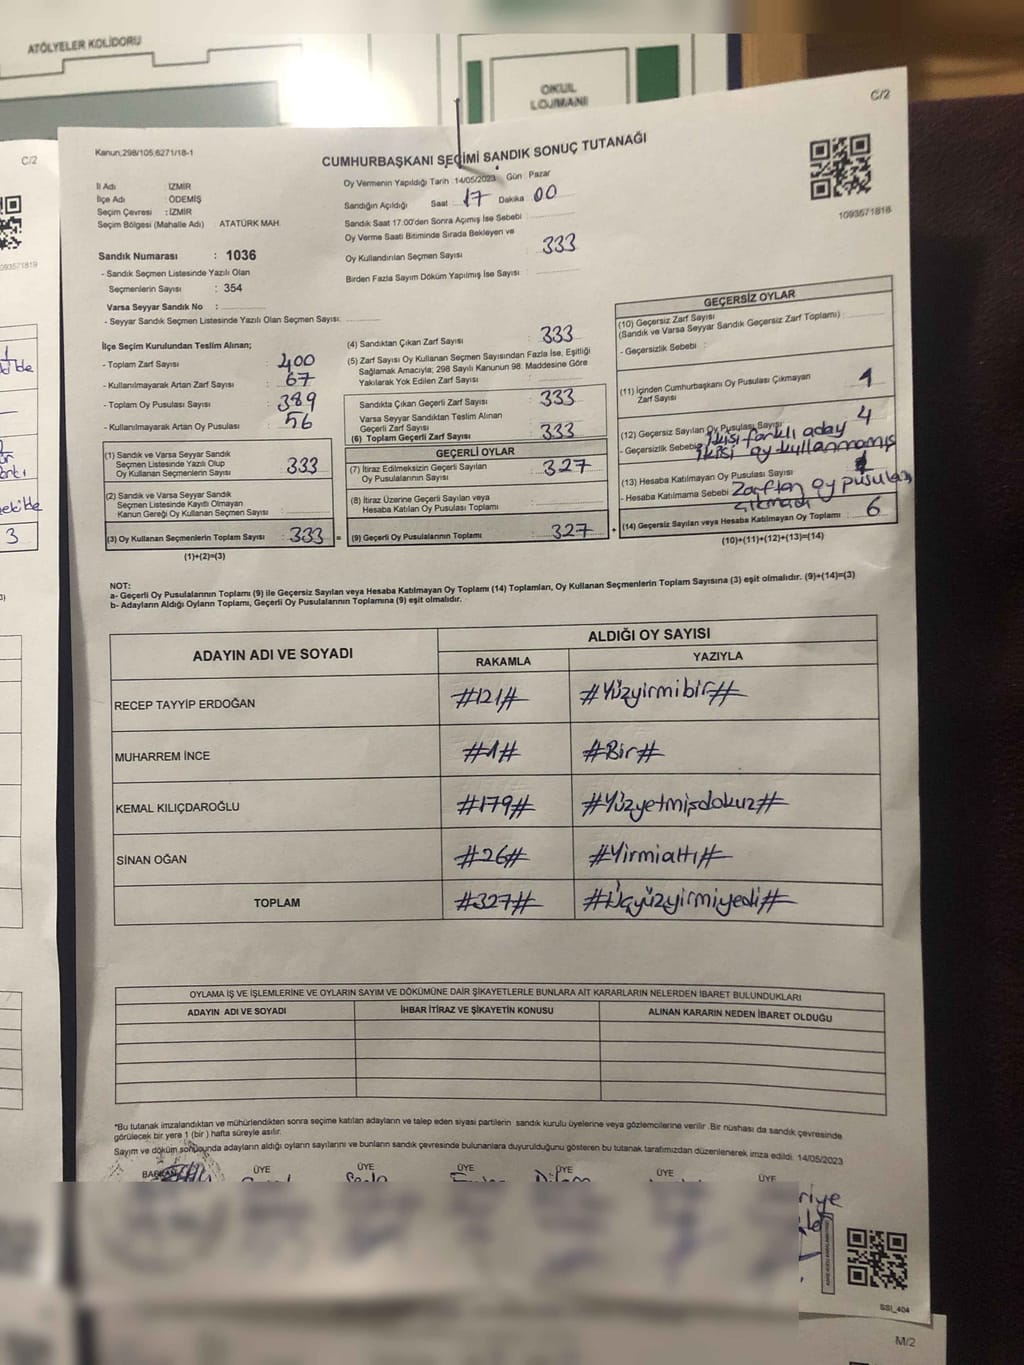 ATÖLYELER KOLİDORU
OKUL
LOJMANI
C/2
C/2
Kanun;298/105;6271/18-1
CUMHURBAŞKANI SEÇİMİ SANDIK SONUÇ TUTANAĞI
1093571818
093571819
İl Adı : İZMİR
İlçe Adı : ÖDEMİŞ
Seçim Çevresi : İZMİR
Seçim Bölgesi (Mahalle Adı) ATATÜRK MAH.
Oy Vermenin Yapıldığı Tarih : 14/05/2023 Gün : Pazar
Sandığın Açıldığı Saat 17 Dakika 00
Sandık Saat 17:00'den Sonra Açılmış İse Sebebi :
Oy Verme Saati Bitiminde Sırada Bekleyen ve
Oy Kullandırılan Seçmen Sayısı : 333
Birden Fazla Sayım Döküm Yapılmış İse Sayısı :
Sandık Numarası : 1036
- Sandık Seçmen Listesinde Yazılı Olan
Seçmenlerin Sayısı : 354
Varsa Seyyar Sandık No :
- Seyyar Sandık Seçmen Listesinde Yazılı Olan Seçmen Sayısı:
İlçe Seçim Kurulundan Teslim Alınan;
- Toplam Zarf Sayısı : 400
- Kullanılmayarak Artan Zarf Sayısı : 67
- Toplam Oy Pusulası Sayısı : 389
- Kullanılmayarak Artan Oy Pusulası : 56
(1) Sandık ve Varsa Seyyar Sandık
Seçmen Listesinde Yazılı Olup
Oy Kullanan Seçmenlerin Sayısı : 333
(2) Sandık ve Varsa Seyyar Sandık
Seçmen Listesinde Kayıtlı Olmayan
Kanun Gereği Oy Kullanan Seçmen Sayısı :
(3) Oy Kullanan Seçmenlerin Toplam Sayısı : 333 =
(1)+(2)=(3)
(4) Sandıktan Çıkan Zarf Sayısı : 333
(5) Zarf Sayısı Oy Kullanan Seçmen Sayısından Fazla İse, Eşitliği
Sağlamak Amacıyla; 298 Sayılı Kanunun 98. Maddesine Göre
Yakılarak Yok Edilen Zarf Sayısı :
Sandıkta Çıkan Geçerli Zarf Sayısı : 333
Varsa Seyyar Sandıktan Teslim Alınan
Geçerli Zarf Sayısı :
(6) Toplam Geçerli Zarf Sayısı : 333
GEÇERLİ OYLAR
(7) İtiraz Edilmeksizin Geçerli Sayılan
Oy Pusulası Sayısı : 327
(8) İtiraz Üzerine Geçerli Sayılan veya
Hesaba Katılan Oy Pusulası Toplamı :
(9) Geçerli Oy Pusulalarının Toplamı : 327 +
GEÇERSİZ OYLAR
(10) Geçersiz Zarf Sayısı
(Sandık ve Varsa Seyyar Sandık Geçersiz Zarf Toplamı) :
- Geçersizlik Sebebi :
(11) İçinden Cumhurbaşkanı Oy Pusulası Çıkmayan
Zarf Sayısı : 1
(12) Geçersiz Sayılan Oy Pusulası Sayısı : 4
- Geçersizlik Sebebi : ikisi farklı aday
ikisi oy kullanmamış
(13) Hesaba Katılmayan Oy Pusulası Sayısı :
- Hesaba Katılmama Sebebi Zarftan oy pusulası
çıkmadı
(14) Geçersiz Sayılan veya Hesaba Katılmayan Oy Toplamı : 6
(10)+(11)+(12)+(13)=(14)
NOT:
a- Geçerli Oy Pusulalarının Toplamı (9) ile Geçersiz Sayılan veya Hesaba Katılmayan Oy Toplamı (14) Toplamları, Oy Kullanan Seçmenlerin Toplam Sayısına (3) eşit olmalıdır. (9)+(14)=(3)
b- Adayların Aldığı Oyların Toplamı, Geçerli Oy Pusulalarının Toplamına (9) eşit olmalıdır.
ADAYIN ADI VE SOYADI ALDIĞI OY SAYISI
RAKAMLA YAZIYLA
RECEP TAYYİP ERDOĞAN #121# #Yüzyirmibir#
MUHARREM İNCE #1# #Bir#
KEMAL KILIÇDAROĞLU #179# #Yüzyetmişdokuz#
SİNAN OĞAN #26# #Yirmialtı#
TOPLAM #327# #Üçyüzyirmiyedi#
OYLAMA İŞ VE İŞLEMLERİNE VE OYLARIN SAYIM VE DÖKÜMÜNE DAİR ŞİKAYETLERLE BUNLARA AİT KARARLARIN NELERDEN İBARET BULUNDUKLARI
ADAYIN ADI VE SOYADI İHBAR İTİRAZ VE ŞİKAYETİN KONUSU ALINAN KARARIN NEDEN İBARET OLDUĞU
*Bu tutanak imzalandıktan ve mühürlendikten sonra seçime katılan adayların ve talep eden siyasi partilerin sandık kurulu üyelerine veya gözlemcilerine verilir. Bir nüshası da sandık çevresinde
görülecek bir yere 1 (bir) hafta süreyle asılır.
Sayım ve döküm sonucunda adayların aldığı oyların sayılarını ve bunların sandık çevresinde bulunanlara duyurulduğunu gösteren bu tutanak tarafımızdan düzenlenerek imza edildi. 14/05/2023
BAŞKAN ÜYE ÜYE ÜYE ÜYE ÜYE ÜYE
SSI_404
M/2